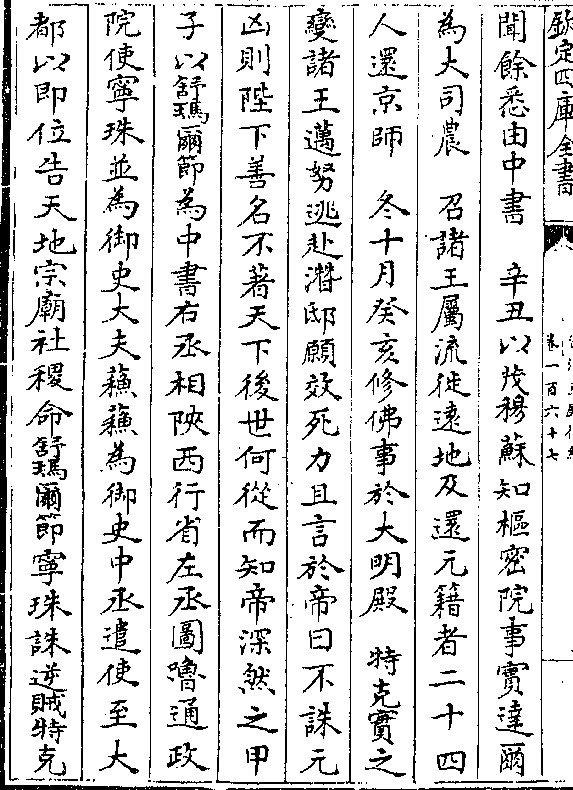 欽定四庫全書
卷一百六十七
聞餘悉由中書　辛丑以茂穆蘇知樞密院事實達爾
為大司農　召諸王屬流徙遠地及還元籍者二十四
人還京師　冬十月癸亥修佛事於大明殿　特克實之
變諸王邁努逃赴潛邸願效死力且言於帝曰不誅元
凶則陛下善名不著天下後世何從而知帝深然之甲
子以舒瑪爾節為中書右丞相陝西行省左丞圖嚕通政
院使寧珠並為御史大夫蘓蘓為御史中丞遣使至大
都以即位告天地宗廟社稷命舒瑪爾節寧珠誅逆賊特克